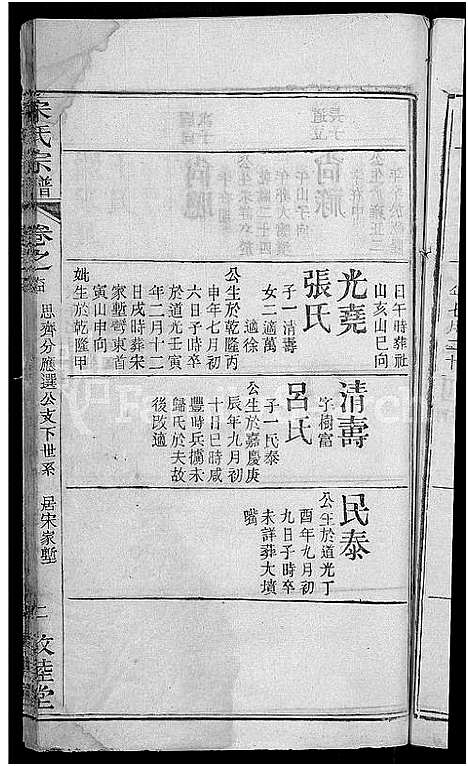 日午時葬社
山亥山巳向
光堯
張氏
子一清壽
女二適萬
適徐
公生於乾隆丙
申年七月初
六日子時卒
於道光壬寅
年二月十二
日戌時葬宋
家塹灣東首
寅山申向
妣生於乾隆甲
清壽
字樹富
呂氏
子一民泰
公生於嘉慶庚
辰年九月初
十日巳時咸
豐時兵擄未
歸氏於夫故
後改適
民泰
公生於道光丁
酉年九月初
九日子時卒
未詳葬大墳
嘴
宋氏宗譜
卷之
思齊分應選公支下世系
居宋家塹
二
敦睦堂